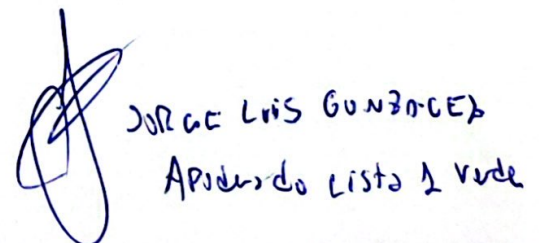 JORGE LUIS GONZALEZ
Apoderado Lista 1 Verde